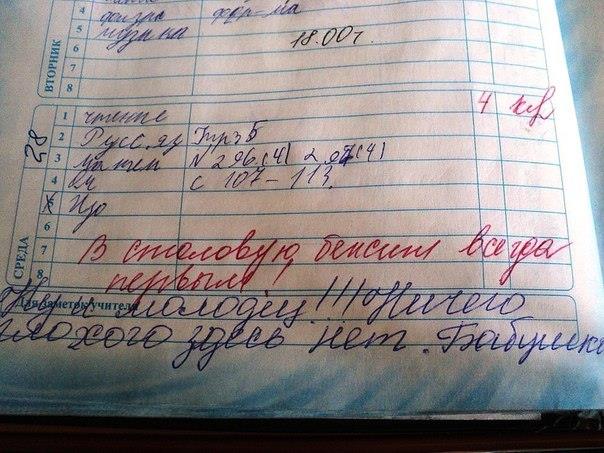 4
физ-ра фор-ма
5 музыка 18.00г.
6
7
8
ВТОРНИК
28
1 чтение 4
2 Русс.яз Упр 5
3 Матем N 296.(4) 297(4)
4 с 107-113.
5 Изо
6
7 В столовую бежит всегда
8 первым!
СРЕДА
Для заметок учителя
Ну и молодец!!! Ничего
плохого здесь нет. Бабушка